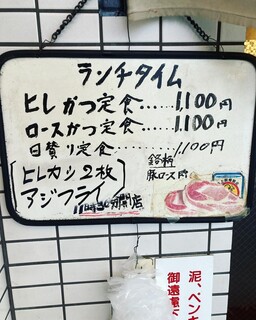 ランチタイム
ヒレかつ定食……1,100円
ロースかつ定食……1,100円
日替り定食……1,100円
ヒレカツ2枚
アジフライ
銘柄
豚ロース
11時30分開店
泥、ペンキ
御遠慮